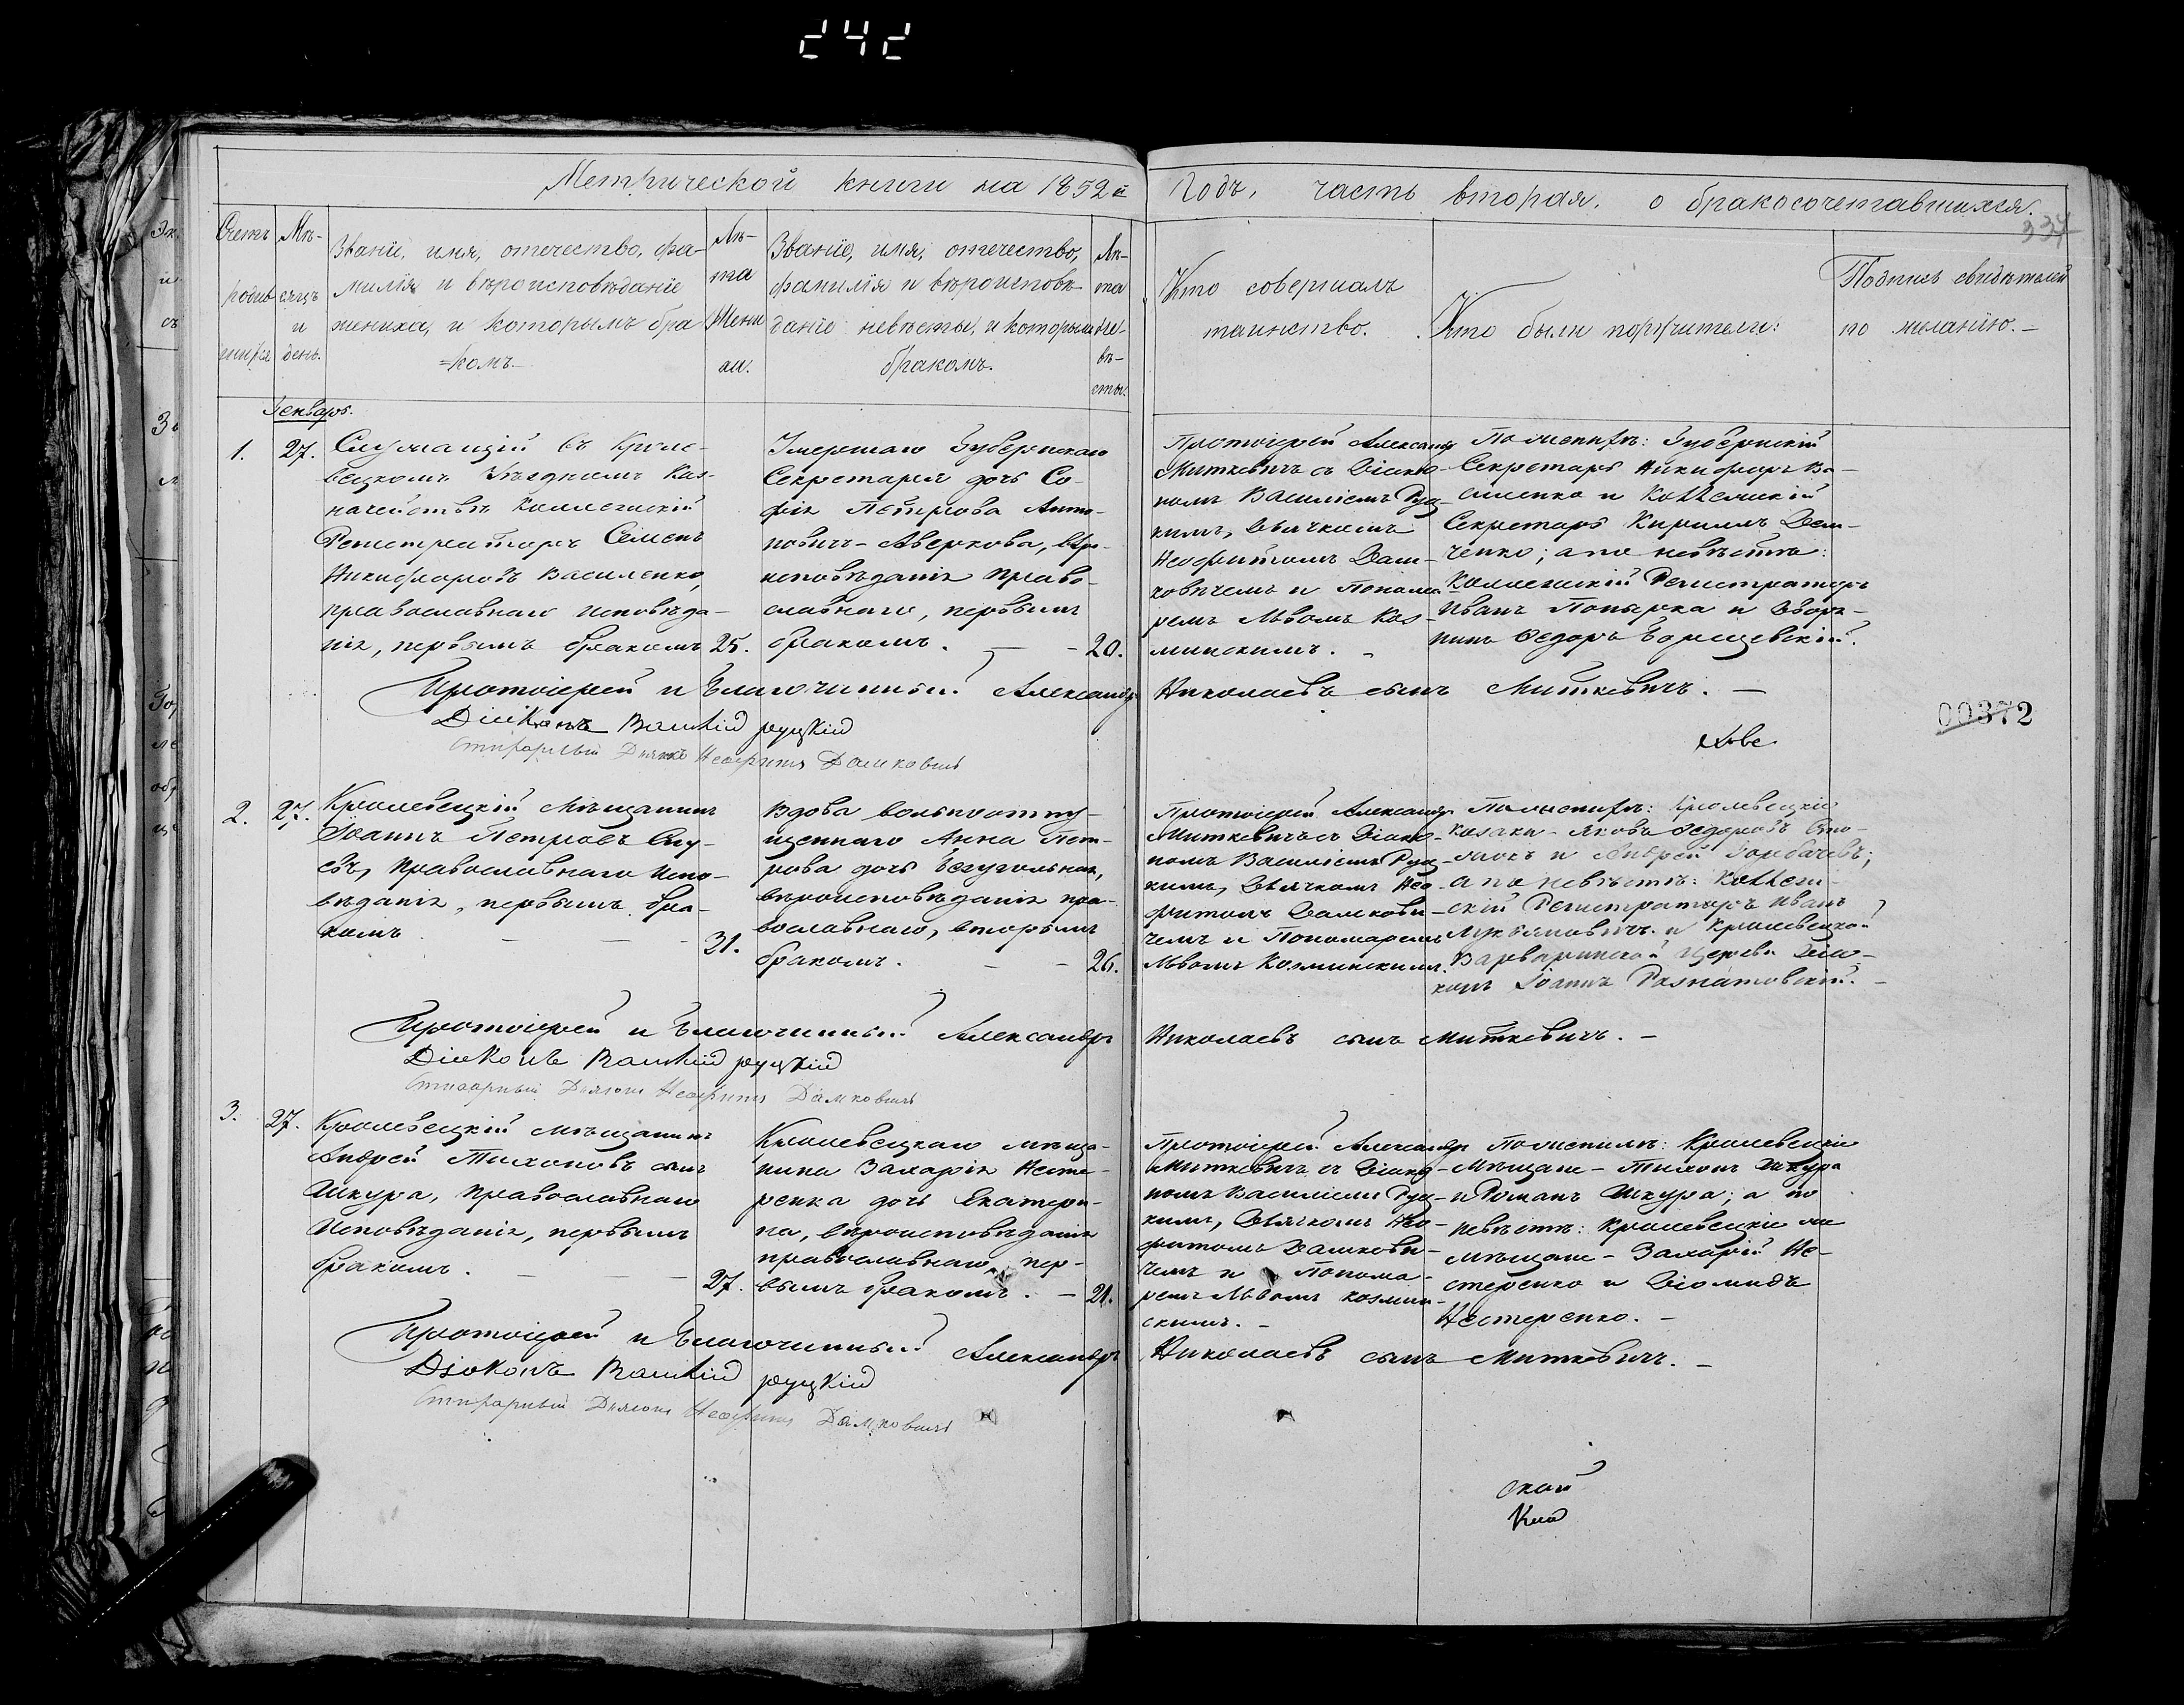 242
Метрической книги на 1852й Годъ, часть вторая, о бракосочетавшихся.
337
Счетъ родив шихся
Мѣ- сяцъ и день.
Званіе, имя, отечество, фа-
милія и вѣроисповѣданіе
жениха, и которымъ бра
=комъ.
Лѣ-
та
Жени
ха.
Званіе, имя, отечество,
фамилія и вѣроисповѣ
даніе невѣсты, и которымъ
бракомъ.
Лѣ-
та
не-
вѣ-
сты.
Кто совершалъ
таинство.
Кто были поручители:
Подпись свидѣтелей
по желанію.-
Генваря.
1.
27.
Служащій въ Кроле-
вецкомъ Уѣздномъ Каз-
начействѣ Коллежскій
Регистраторъ Семенъ
Никифоровъ Василенко,
православнаго исповѣда-
нія, первымъ бракомъ
25.
Умершаго Губернскаго
Секретаря дочь Со-
фія Петрова Анто-
повичъ-Аверкова, вѣро-
исповѣданія право-
славнаго, первымъ
бракомъ. — -
20.
Протоіерей Александръ
Миткевичъ съ Діако-
номъ Василіемъ Руц-
кимъ, Дьячкомъ
Неофитомъ Даш-
ковичемъ и Понома
ремъ Львомъ Коз-
минскимъ.
По женихѣ: Губернскій
Секретарь Никифоръ Ва-
силенко и Коллежскій
Секретарь Кириллъ Дем-
ченко; а по невѣстѣ:
Коллежскій Регистраторъ
Иванъ Попырка и Дворя-
нинъ Ѳедоръ Борщевскій.
Протоіерей и Благочинный Александръ Николаевъ сынъ Миткевичъ. —
Діяконъ Василій Руцкій
Дьячокъ Неофитъ Дашковичъ
00372
2.
27.
Кролевецкій Мѣщанинъ
Іоаннъ Петровъ
православнаго испо-
вѣданія, первымъ бра-
комъ
31.
Вдова вольноотпу-
щеннаго Анна Пет-
рова дочь Безугольная,
вѣроисповѣданія пра-
вославнаго, вторымъ
бракомъ. — -
26.
Протоіерей Александръ
Миткевичъ съ Діако-
номъ Василіемъ Руц-
кимъ, Дьячкомъ Нео-
фитомъ Дашкови-
чемъ и Пономаремъ
Львомъ Козминскимъ.
По женихѣ: Кролевецкіе
козаки - Яковъ Ѳедоровъ
и Андрей Горбачевъ;
а по невѣстѣ: Коллеж-
скій Регистраторъ Иванъ
Лукьяновичъ и Кролевецкой
Варваринской Церкви Діа-
конъ Іоаннъ Рознатовскій. -
Протоіерей и Благочинный Александръ Николаевъ сынъ Миткевичъ. -
Діяконъ Василій Руцкій
Дьячокъ Неофитъ Дашковичъ
3.
27.
Кролевецкій мѣщанинъ
Андрей Тихоновъ сынъ
Шкура, православнаго
исповѣданія, первымъ
бракомъ. — — -
27.
Кролевецкаго мѣща-
нина Захарія Несте-
ренка дочь Екатери-
на, вѣроисповѣданія
православнаго, пер-
вымъ бракомъ. -
21.
Протоіерей Александръ
Миткевичъ съ Діако-
номъ Василіемъ Руц-
кимъ, Дьячкомъ Нео-
фитомъ Дашкови-
чемъ и Понома-
ремъ Львомъ Козмин-
скимъ. -
По женихѣ: Кролевецкіе
Мѣщане - Тихонъ Шкура
и Романъ Шкура; а по
невѣстѣ: Кролевецкіе
мѣщане - Захарій Не-
стеренко и Діомидъ
Нестеренко. -
Протоіерей и Благочинный Александръ Николаевъ сынъ Миткевичъ. -
Діяконъ Василій Руцкій
Дьячокъ Неофитъ Дашковичъ
ской